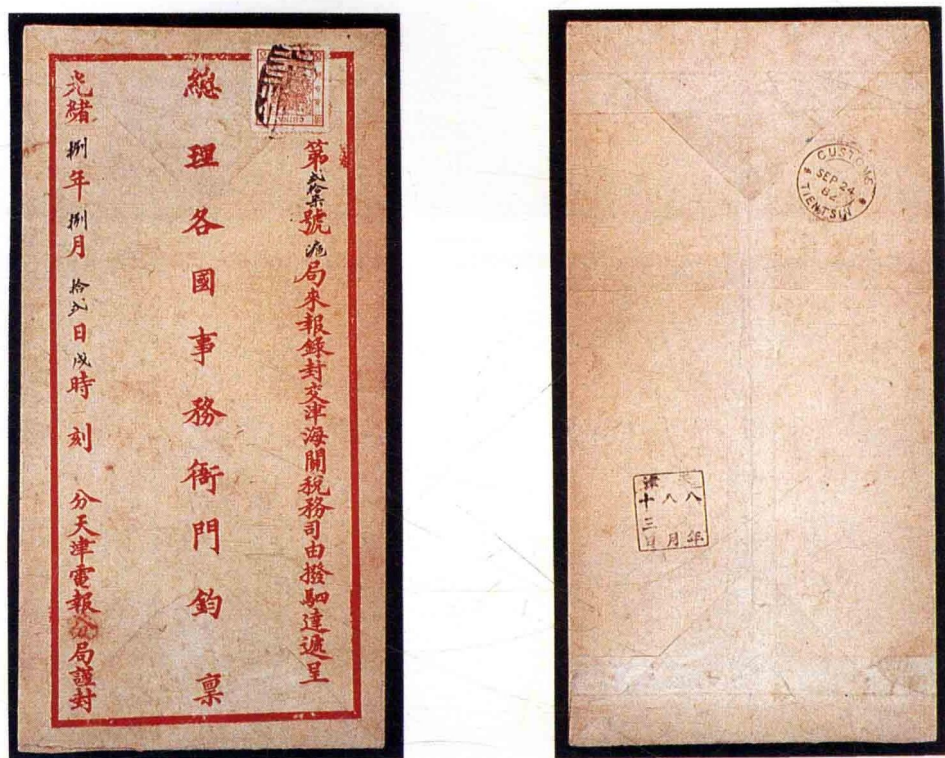 第貳拾柒號滬局來報錄封交津海關稅務司由撥駟達遞呈
總理各國事務衙門鈞稟
光緒捌年捌月拾貳日戌時 刻 分天津電報分局謹封
CHINA
CUSTOMS
SEP 24
82
TIENTSIN
八年
八月
津十三日